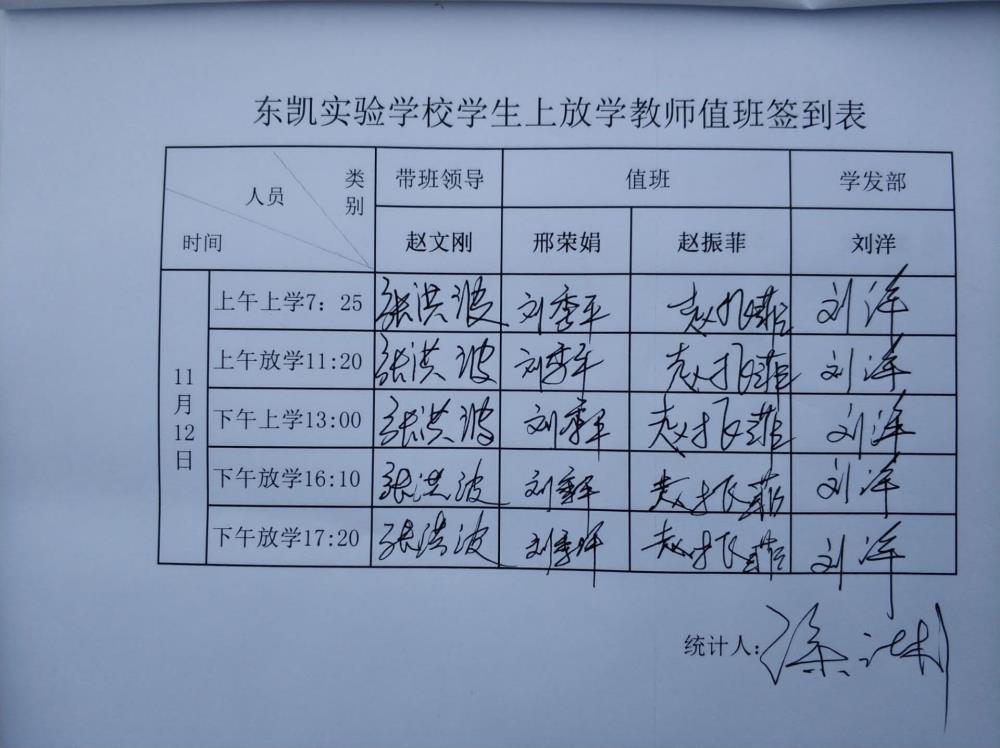 东凯实验学校学生上放学教师值班签到表
人员 类别 时间 带班领导 值班 学发部
赵文刚 邢荣娟 赵振菲 刘洋
11月12日
上午上学7：25 张洪波 刘季平 赵振菲 刘洋
上午放学11:20 张洪波 刘季平 赵振菲 刘洋
下午上学13:00 张洪波 刘季平 赵振菲 刘洋
下午放学16:10 张洪波 刘季平 赵振菲 刘洋
下午放学17:20 张洪波 刘季平 赵振菲 刘洋
统计人：